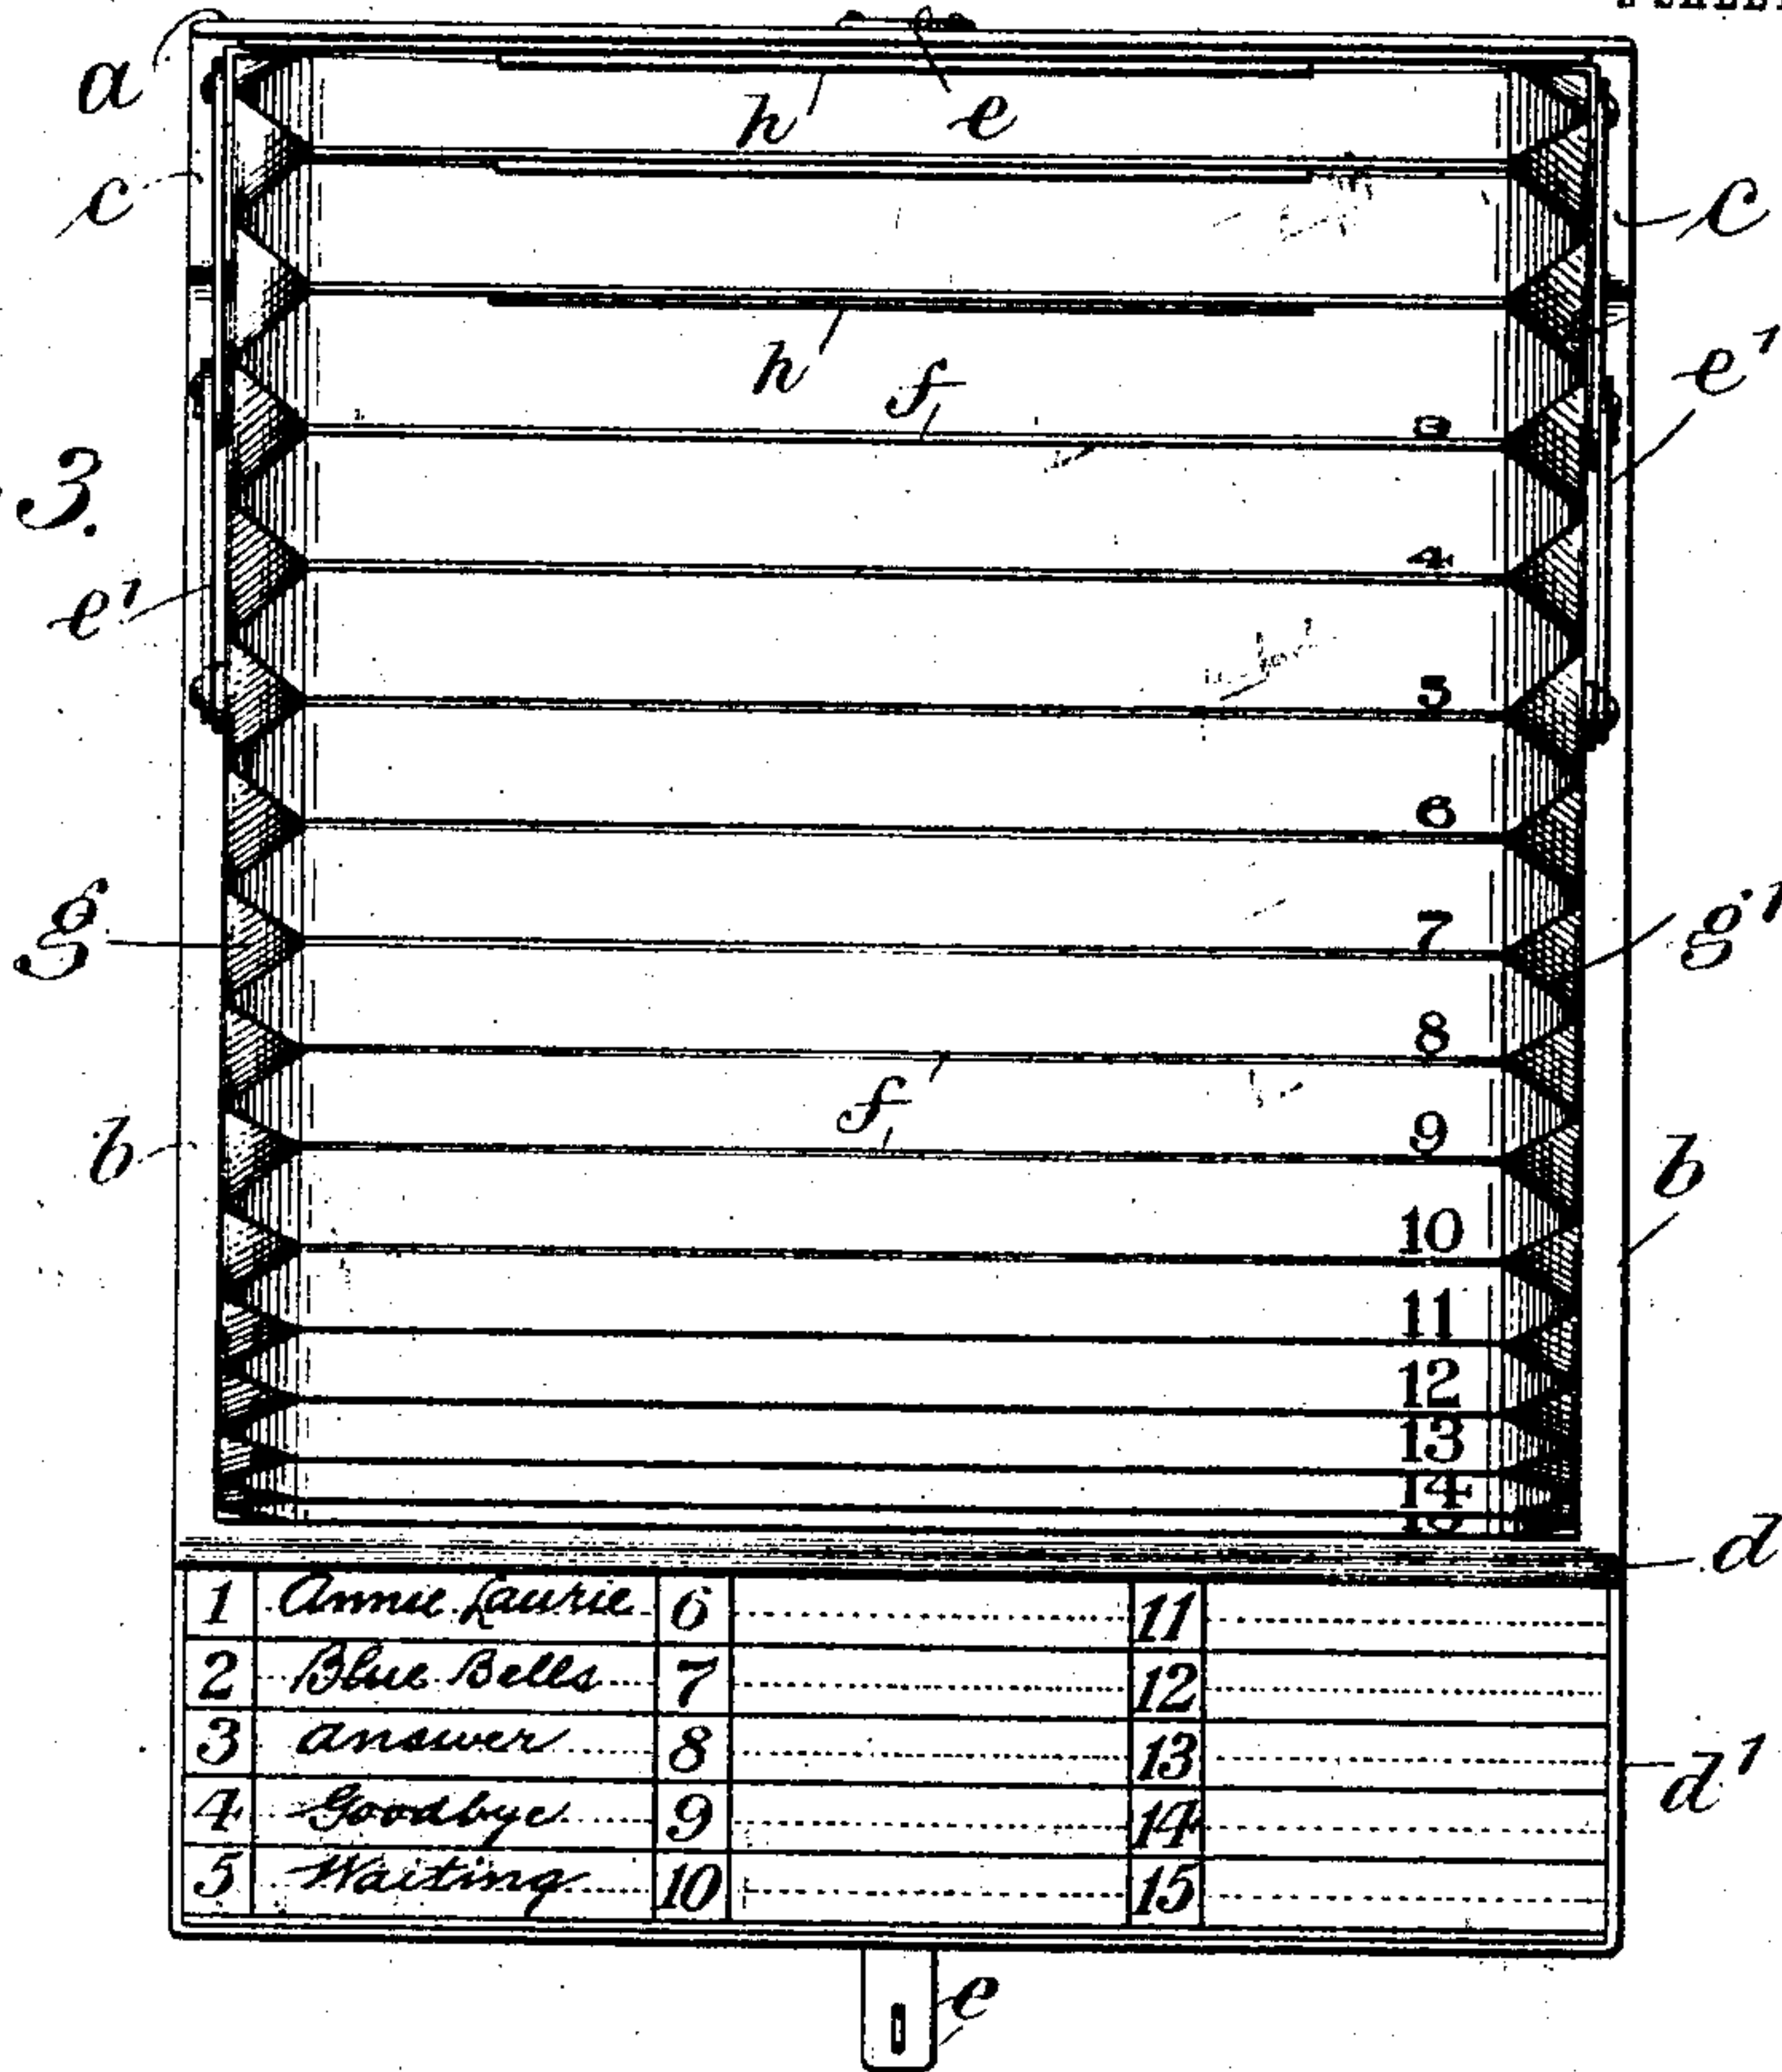 a
h e
c c
h
f
3
e'
3.
4
e'
5
6
g 7 g'
8
f
b 9 b
10
11
12
13
14
d
1 Annie Laurie 6 11
2 Blue Bells 7 12
3 Answer 8 13
d'
4 Goodbye 9 14
5 Waiting 10 15
e